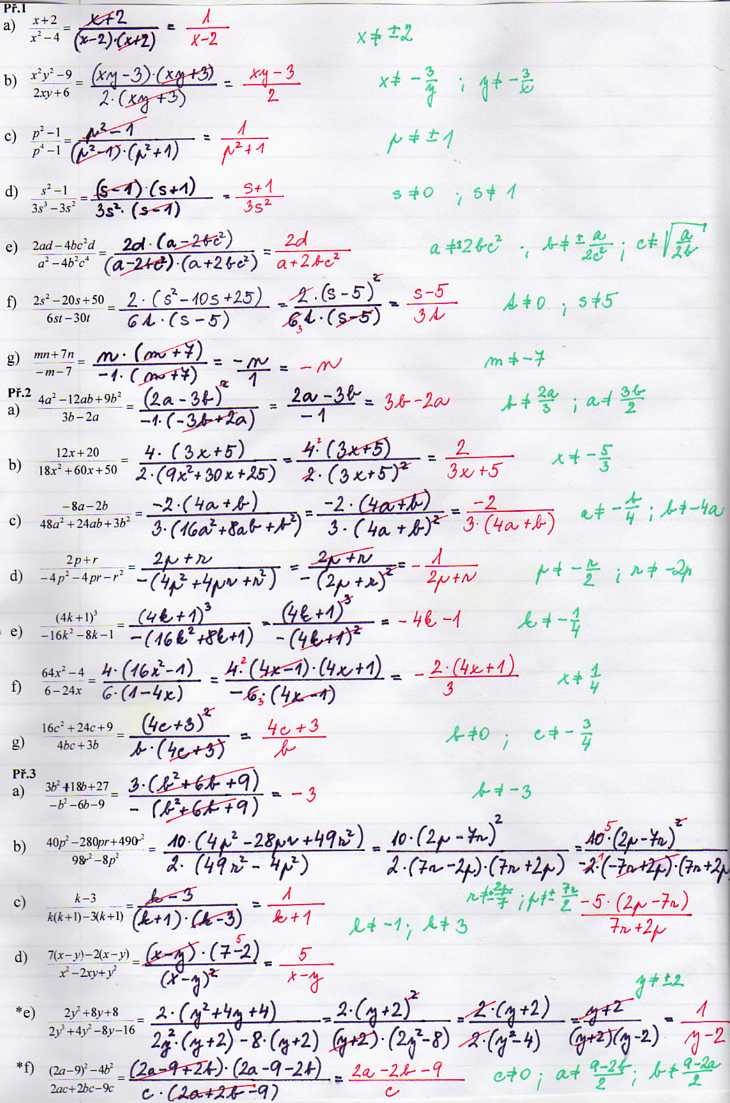 Př.1
a) (x+2)/(x²-4) = (x+2)/((x-2)·(x+2)) = 1/(x-2)   x ≠ ±2
b) (x²y²-9)/(2xy+6) = ((xy-3)·(xy+3))/(2·(xy+3)) = (xy-3)/2   x ≠ -3/y ; y ≠ -3/x
c) (p²-1)/(p⁴-1) = (p²-1)/((p²-1)·(p²+1)) = 1/(p²+1)   p ≠ ±1
d) (s²-1)/(3s³-3s²) = ((s-1)·(s+1))/(3s²·(s-1)) = (s+1)/(3s²)   s ≠ 0 ; s ≠ 1
e) (2ad-4bc²d)/(a²-4b²c⁴) = (2d·(a-2bc²))/((a-2bc²)·(a+2bc²)) = 2d/(a+2bc²)   a ≠ ±2bc² ; b ≠ ±a/(2c²) ; c ≠ √(a/(2b))
f) (2s²-20s+50)/(6st-30t) = (2·(s²-10s+25))/(6t·(s-5)) = (2·(s-5)²)/(6t·(s-5)) = (s-5)/(3t)   t ≠ 0 ; s ≠ 5
g) (mn+7n)/(-m-7) = (n·(m+7))/(-1·(m+7)) = -n/1 = -n   m ≠ -7
Př.2
a) (4a²-12ab+9b²)/(3b-2a) = (2a-3b)²/(-1·(-3b+2a)) = (2a-3b)/(-1) = 3b-2a   b ≠ 2a/3 ; a ≠ 3b/2
b) (12x+20)/(18x²+60x+50) = (4·(3x+5))/(2·(9x²+30x+25)) = (4·(3x+5))/(2·(3x+5)²) = 2/(3x+5)   x ≠ -5/3
c) (-8a-2b)/(48a²+24ab+3b²) = (-2·(4a+b))/(3·(16a²+8ab+b²)) = (-2·(4a+b))/(3·(4a+b)²) = -2/(3·(4a+b))   a ≠ -b/4 ; b ≠ -4a
d) (2p+r)/(-4p²-4pr-r²) = (2p+r)/(-(4p²+4pr+r²)) = (2p+r)/(-(2p+r)²) = -1/(2p+r)   p ≠ -r/2 ; r ≠ -2p
e) (4k+1)³/(-16k²-8k-1) = (4k+1)³/(-(16k²+8k+1)) = (4k+1)³/(-(4k+1)²) = -4k-1   k ≠ -1/4
f) (64x²-4)/(6-24x) = (4·(16x²-1))/(6·(1-4x)) = (4·(4x-1)·(4x+1))/(-6·(4x-1)) = -(2·(4x+1))/3   x ≠ 1/4
g) (16c²+24c+9)/(4bc+3b) = (4c+3)²/(b·(4c+3)) = (4c+3)/b   b ≠ 0 ; c ≠ -3/4
Př.3
a) (3b²+18b+27)/(-b²-6b-9) = (3·(b²+6b+9))/(-(b²+6b+9)) = -3   b ≠ -3
b) (40p²-280pr+490r²)/(98r²-8p²) = (10·(4p²-28pr+49r²))/(2·(49r²-4p²)) = (10·(2p-7r)²)/(2·(7r-2p)·(7r+2p)) = (10·(2p-7r)²)/(-2·(-7r+2p)·(7r+2p)
c) (k-3)/(k(k+1)-3(k+1)) = (k-3)/((k+1)·(k-3)) = 1/(k+1)   k ≠ -1 ; k ≠ 3   r ≠ ±2p/7 ; p ≠ ±7r/2   (-5·(2p-7r))/(7r+2p)
d) (7(x-y)-2(x-y))/(x²-2xy+y²) = ((x-y)·(7-2))/(x-y)² = 5/(x-y)
y ≠ ±2
*e) (2y²+8y+8)/(2y³+4y²-8y-16) = (2·(y²+4y+4))/(2y²·(y+2)-8·(y+2)) = (2·(y+2)²)/((y+2)·(2y²-8)) = (2·(y+2))/(2·(y²-4)) = (y+2)/((y+2)(y-2)) = 1/(y-2)
*f) ((2a-9)²-4b²)/(2ac+2bc-9c) = ((2a-9+2b)·(2a-9-2b))/(c·(2a+2b-9)) = (2a-2b-9)/c   c ≠ 0 ; a ≠ (9-2b)/2 ; b ≠ (9-2a)/2